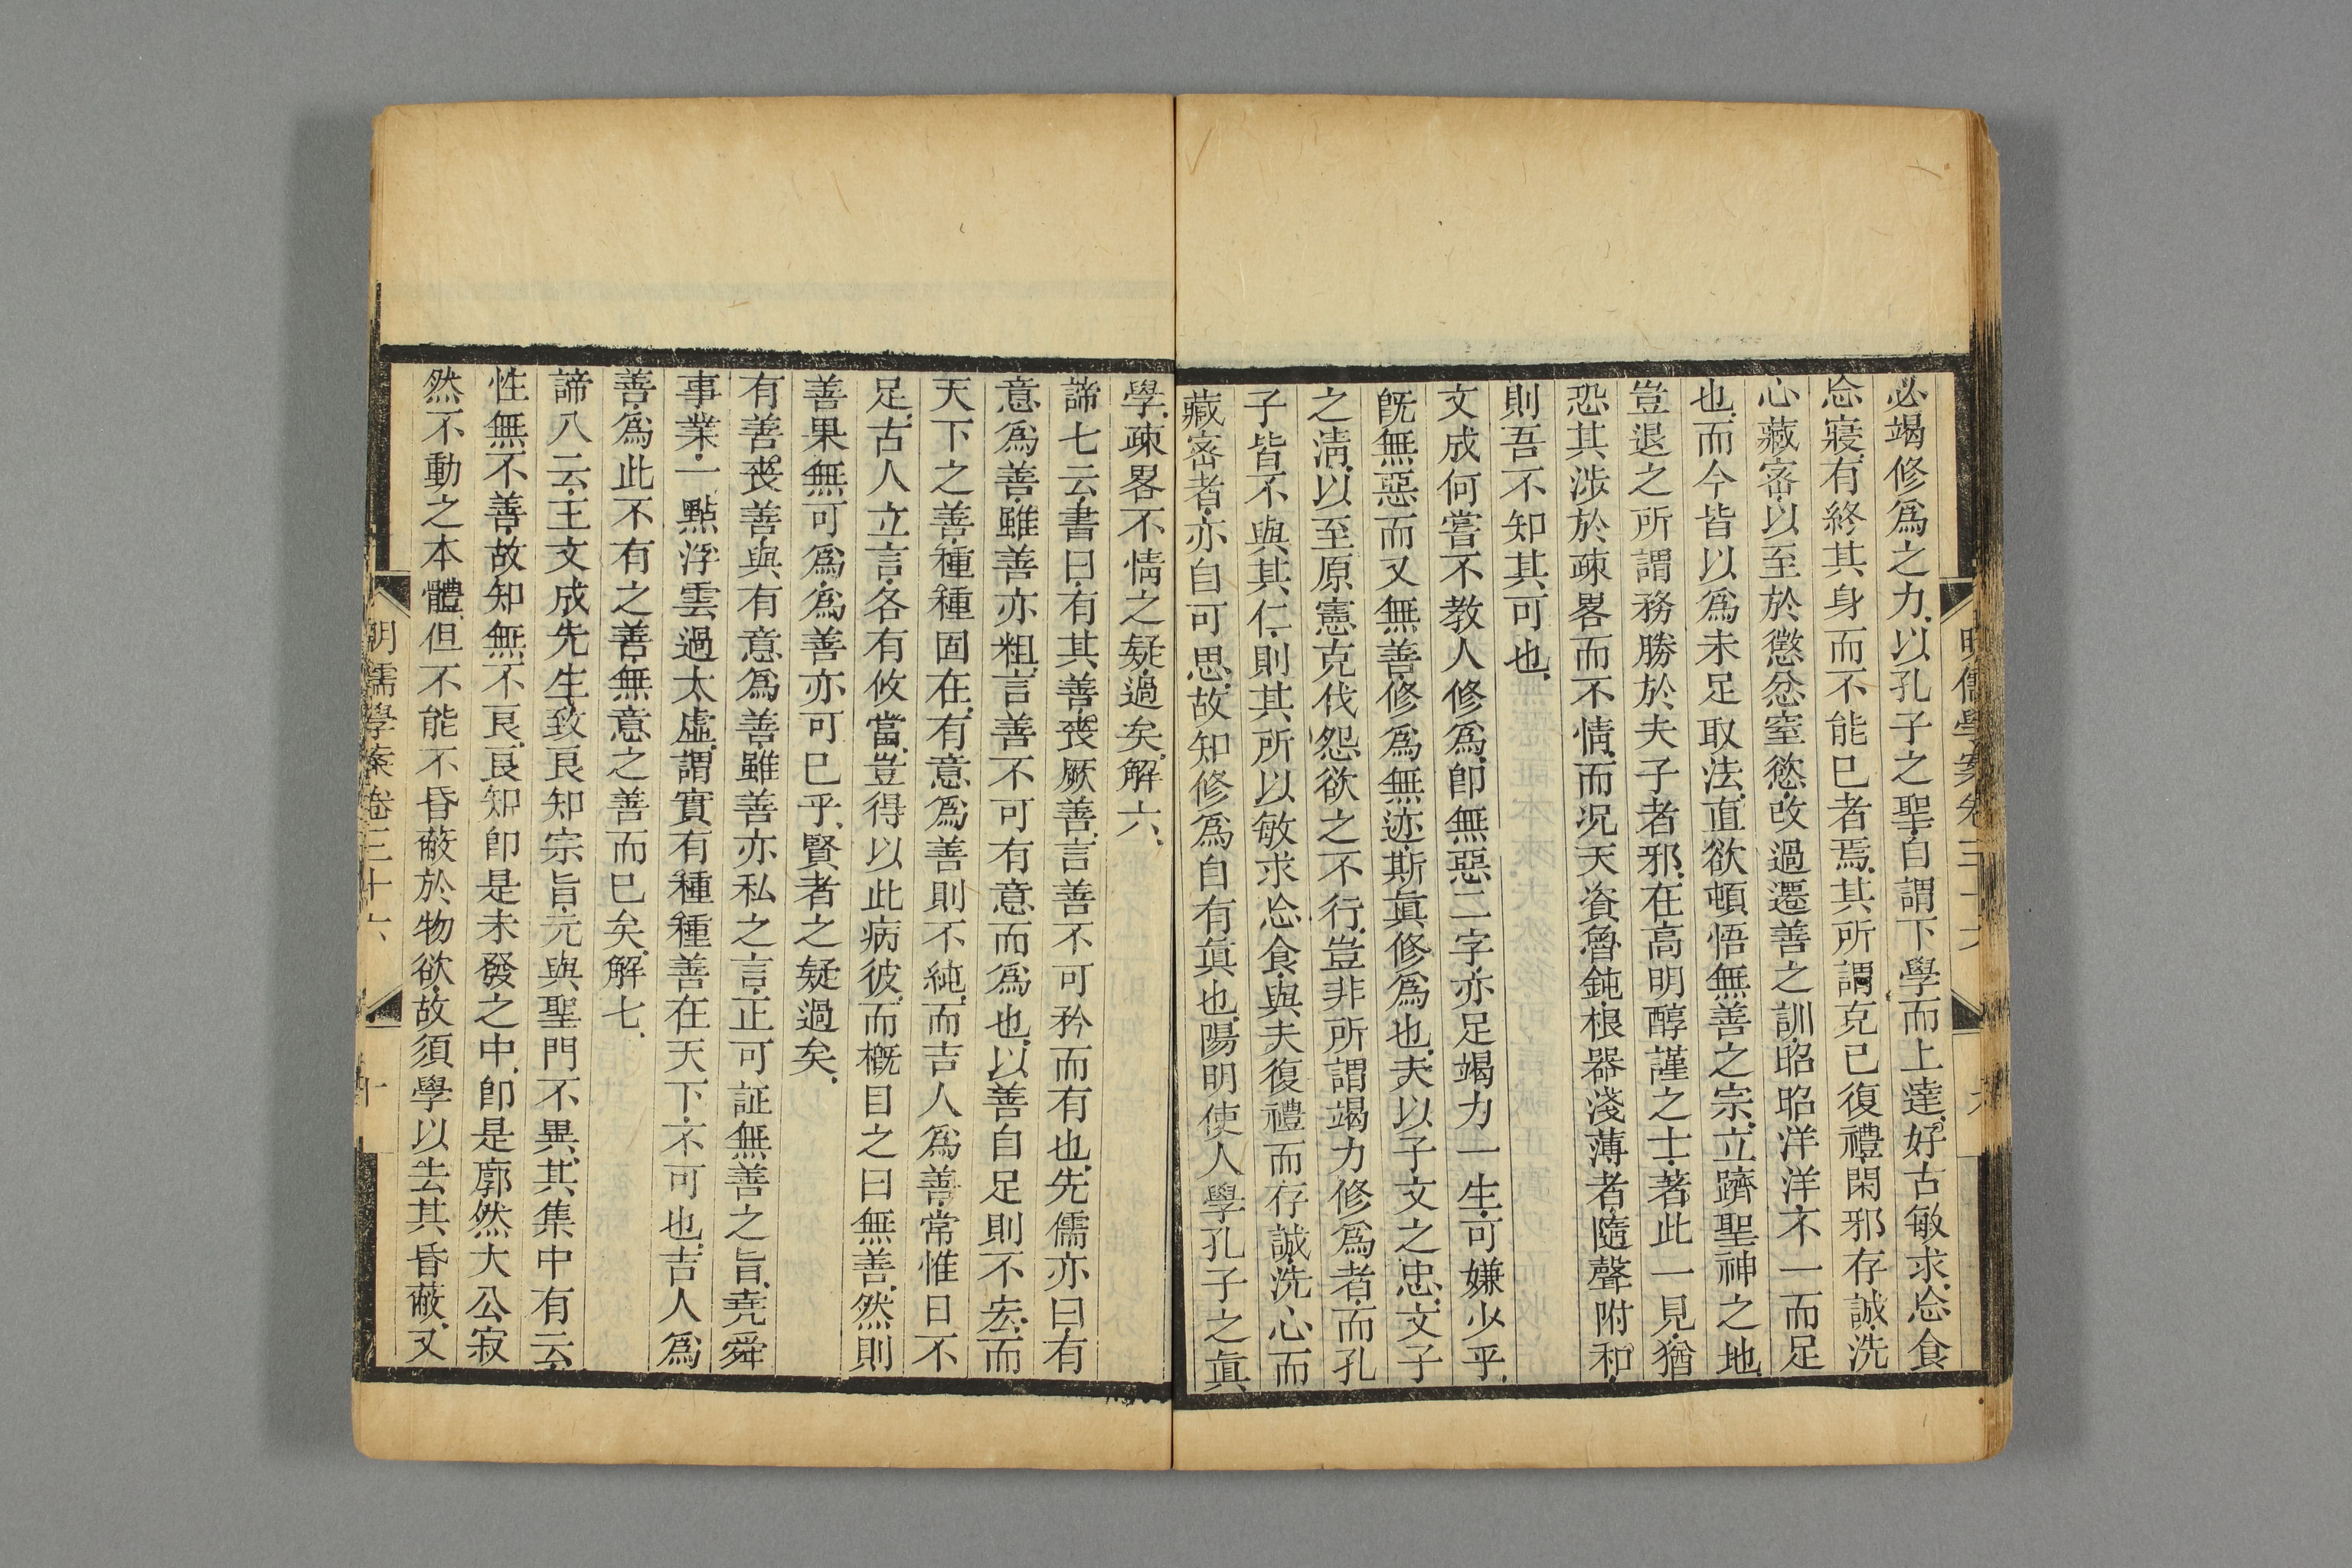 明儒學案卷三十六
必竭修爲之力、以孔子之聖、自謂下學而上達、好古敏求、忘食
忘寢、有終其身而不能已者焉、其所謂克己復禮、閑邪存誠、洗
心藏密、以至於懲忿窒慾、改過遷善之訓、昭昭洋洋、不一而足
也、而今皆以爲未足取法、直欲頓悟無善之宗、立躋聖神之地、
豈退之所謂務勝於夫子者邪、在高明醇謹之士、著此一見、猶
恐其涉於疎畧而不情、而況天資魯鈍、根器淺薄者、隨聲附和、
則吾不知其可也、
文成何嘗不教人修爲、卽無惡二字、亦足竭力一生、可嫌少乎、
旣無惡而又無善、修爲無迹、斯眞修爲也、夫以子文之忠、文子
之淸、以至原憲克伐怨欲之不行、豈非所謂竭力修爲者、而孔
子皆不與其仁、則其所以敏求忘食、與夫復禮而存誠、洗心而
藏密者、亦自可思、故知修爲自有眞也、陽明使人學孔子之眞
學、疎畧不情之疑過矣、解六、
諦七云、書曰、有其善、喪厥善、言善不可矜而有也、先儒亦曰有
意爲善、雖善亦粗、言善不可有意而爲也、以善自足則不宏、而
天下之善、種種固在、有意爲善則不純、而吉人爲善、常惟日不
足、古人立言、各有攸當、豈得以此病彼、而槪目之曰無善、然則
善果無可爲、爲善亦可已乎、賢者之疑過矣、
有善喪善、與有意爲善、雖善亦私之言、正可証無善之旨、堯舜
事業、一點浮雲過太虛、謂實有種種善在天下、不可也、吉人爲
善、爲此不有之善、無意之善而已矣、解七、
諦八云、王文成先生致良知宗旨、元與聖門不異、其集中有云、
性無不善、故知無不良、良知卽是未發之中、卽是廓然大公寂
然不動之本體、但不能不昏蔽於物欲、故須學以去其昏蔽、又
明儒學案卷三十六
十